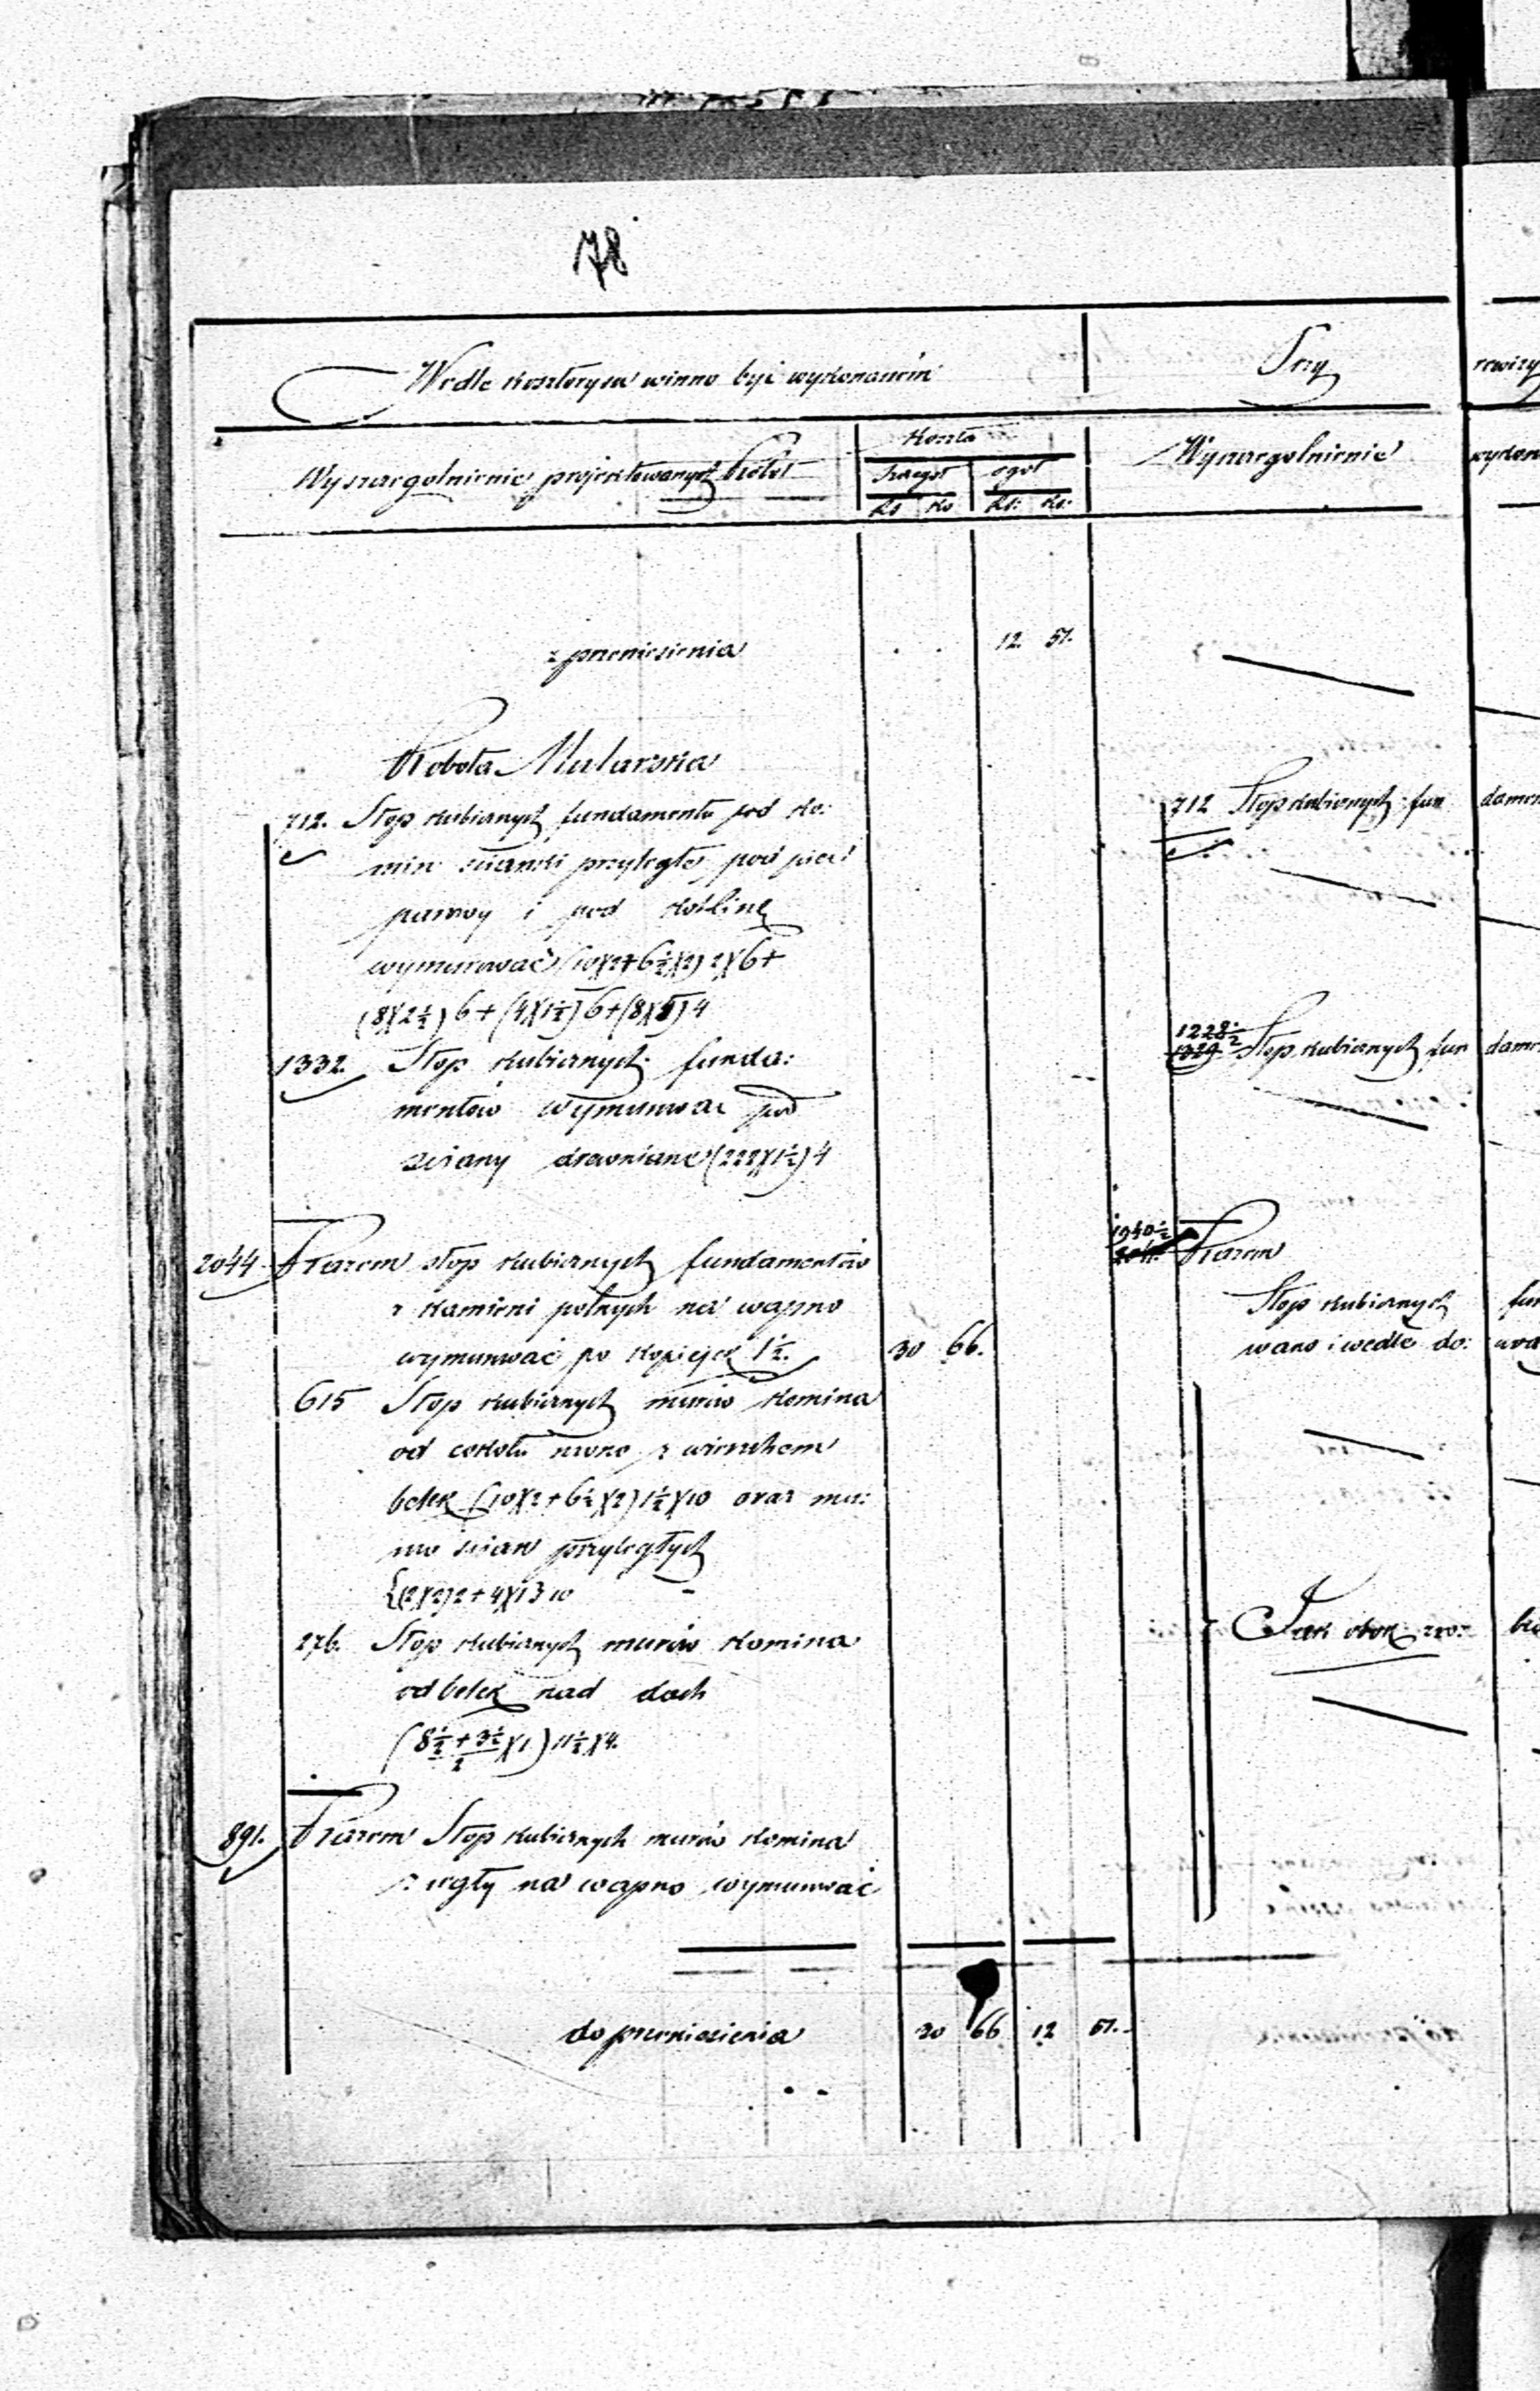 78
Wedle kosztorysu winno być wykonanem
Przy
rewizy
Wyszczególnienie projektowanych Robót
Koszta
Szczegół
ogół
Rs Ko
Rs: Ko:
Wyszczególnienie
wykon
z przeniesienia
12. 57.
Robota Mularska
712. Stop kubicznych fundamentu pod ko:
min ścianki przyległe pod piec
parowy i pod kotlinę
wymurować (10X2+6½X2) 2X6+
(8X2½) 6+(4X1½) 6+(8X4) 4
1332. Stop kubicznych funda:
mentów wymurować pod
ściany drewniane (222X1½) 4
2044 Razem stop kubicznych fundamentów
z kamieni polnych na wapno
wymurować po kopiejek 1½.
30 66.
615 Stop kubicznych murów komina
od cokołu równo z wierzchem
belek (10X2+6½X2) 1½X10 oraz mu:
rów ścian przyległych
{(2X2)2+4X1}10
276. Stop kubicznych murów komina
od belek nad dach
(8½+3½/2 X1) 11½X4.
891. Razem Stop kubicznych murów komina
z cegły na wapno wymurować
do przeniesienia
30 66 12 57.
712 Stop kubicznych fun
damen
1228½
1329 Stop kubicznych fun
damen
1940½
Razem
Stop kubicznych
fun
wano i wedle do:
Jak obok zro: